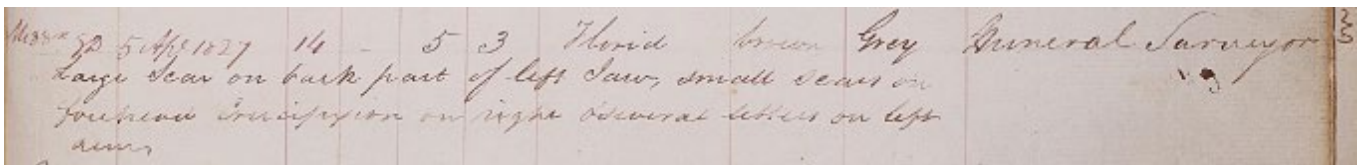 5 Apl 1827 14 - 5 3 Florid brown Grey Mineral Surveyor
Large Scar on back part of left Jaw, small scars on
forehead Crucifixion on right & several letters on left
arm,